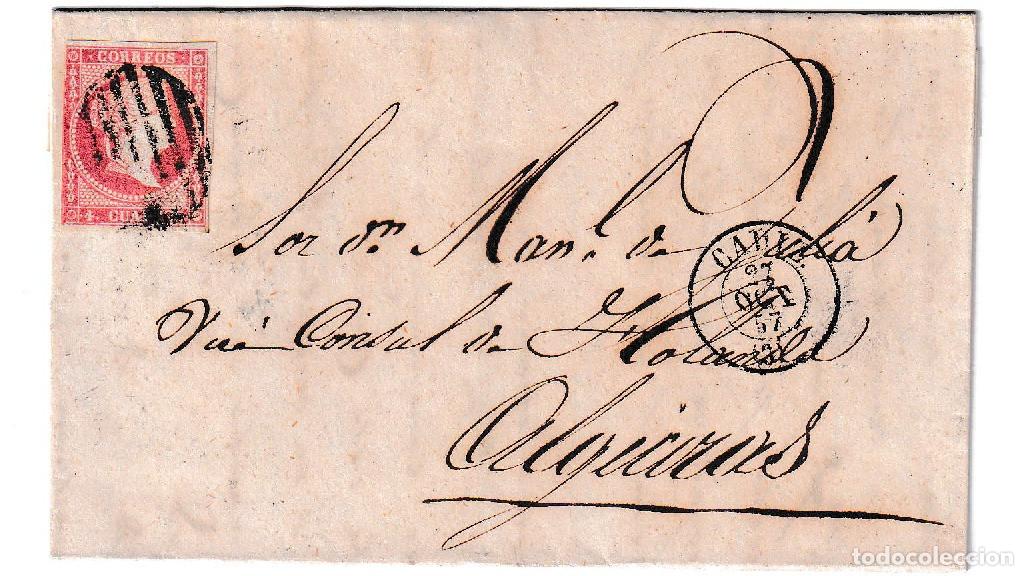 CORREOS
4 CUA
Sor dn Manl. de Juliá
Vice Consul de Holanda
Algeciras
27
OCT
57
todocoleccion